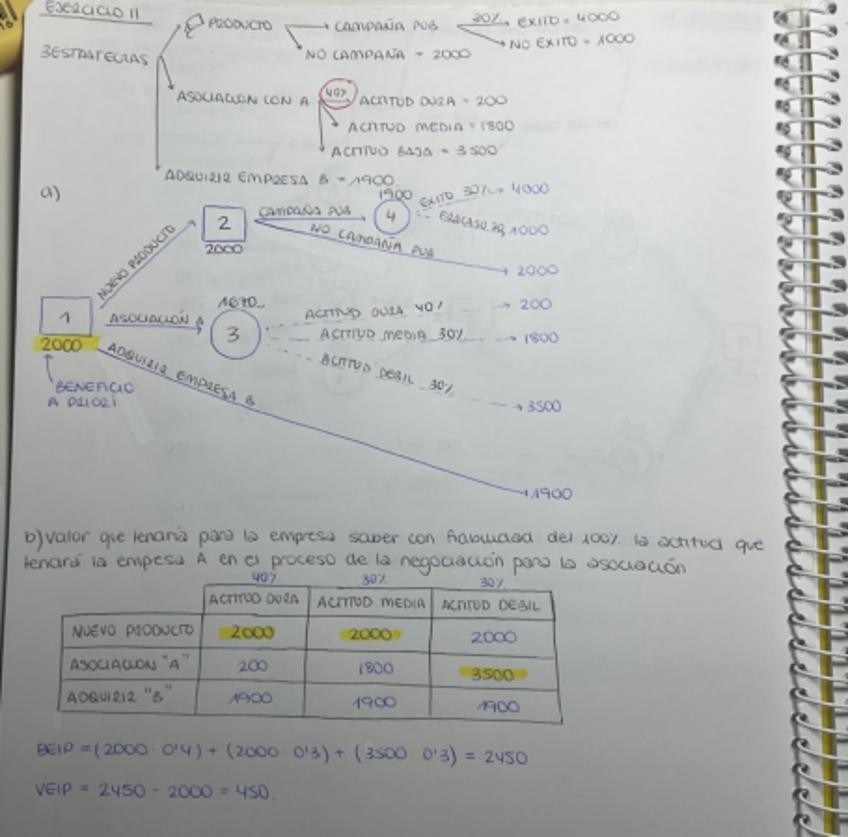 EJERCICIO 11
PRODUCTO → CAMPAÑA PUB 30% → EXITO = 4000
→ NO EXITO = 1000
NO CAMPAÑA = 2000
3 ESTRATEGIAS
ASOCIACION CON A 40% ACTITUD DURA = 200
ACTITUD MEDIA = 1800
ACTITUD BAJA = 3500
ADQUIRIR EMPRESA B = 1900.
a)
NUEVO PRODUCTO
2
2000
CAMPAÑA PUB
1900
4
EXITO 30% → 4000
FRACASO 70% 1000
NO CAMPAÑA PUB
→ 2000
1
2000
BENEFICIO
A PRIORI
ASOCIACIÓN A
1670
3
ACTITUD DURA 40% → 200
ACTITUD MEDIA 30% → 1800
ACTITUD DEBIL 30% → 3500
ADQUIRIR EMPRESA B
→ 1900
b) Valor que tenaría para la empresa saber con fiabilidad del 100% la actitud que
tendrá la empesa A en el proceso de la negociación para la asociación
40% 30% 30%
ACTITUD DURA ACTITUD MEDIA ACTITUD DEBIL
NUEVO PRODUCTO 2000 2000 2000
ASOCIACION "A" 200 1800 3500
ADQUIRIR "B" 1900 1900 1900
BEIP = (2000 · 0'4) + (2000 · 0'3) + (3500 · 0'3) = 2450
VEIP = 2450 - 2000 = 450.